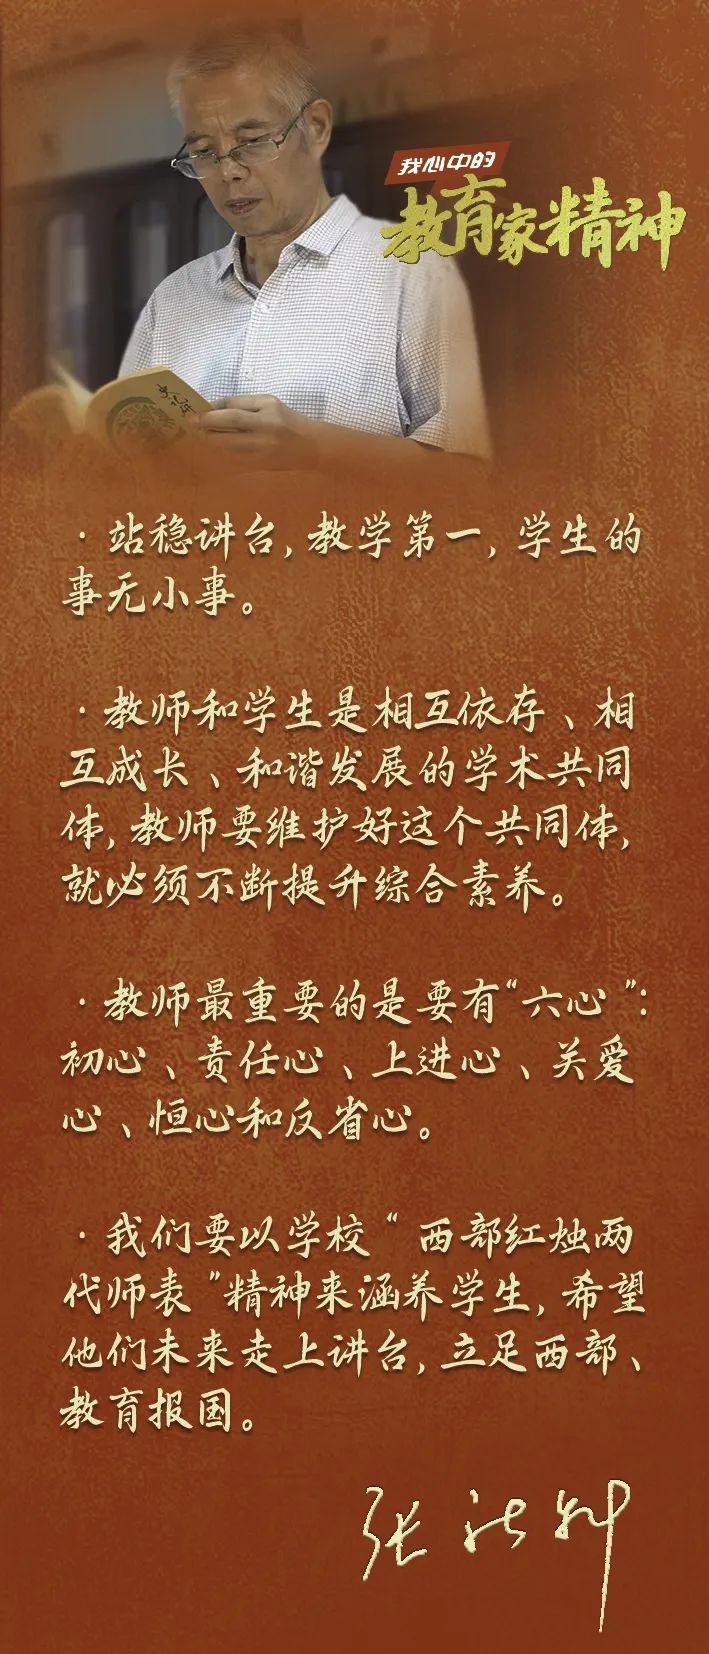 我心中的
教育家精神
· 站稳讲台，教学第一，学生的
事无小事。
· 教师和学生是相互依存、相
互成长、和谐发展的学术共同
体，教师要维护好这个共同体，
就必须不断提升综合素养。
· 教师最重要的是要有“六心”：
初心、责任心、上进心、关爱
心、恒心和反省心。
· 我们要以学校“西部红烛两
代师表”精神来涵养学生，希望
他们未来走上讲台，立足西部、
教育报国。